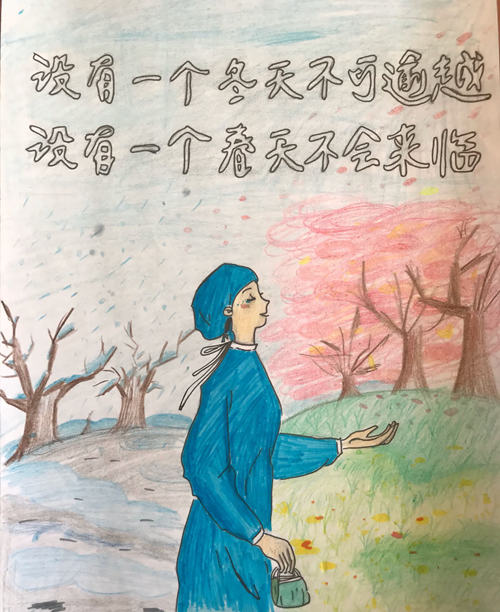 没有一个冬天不可逾越
没有一个春天不会来临